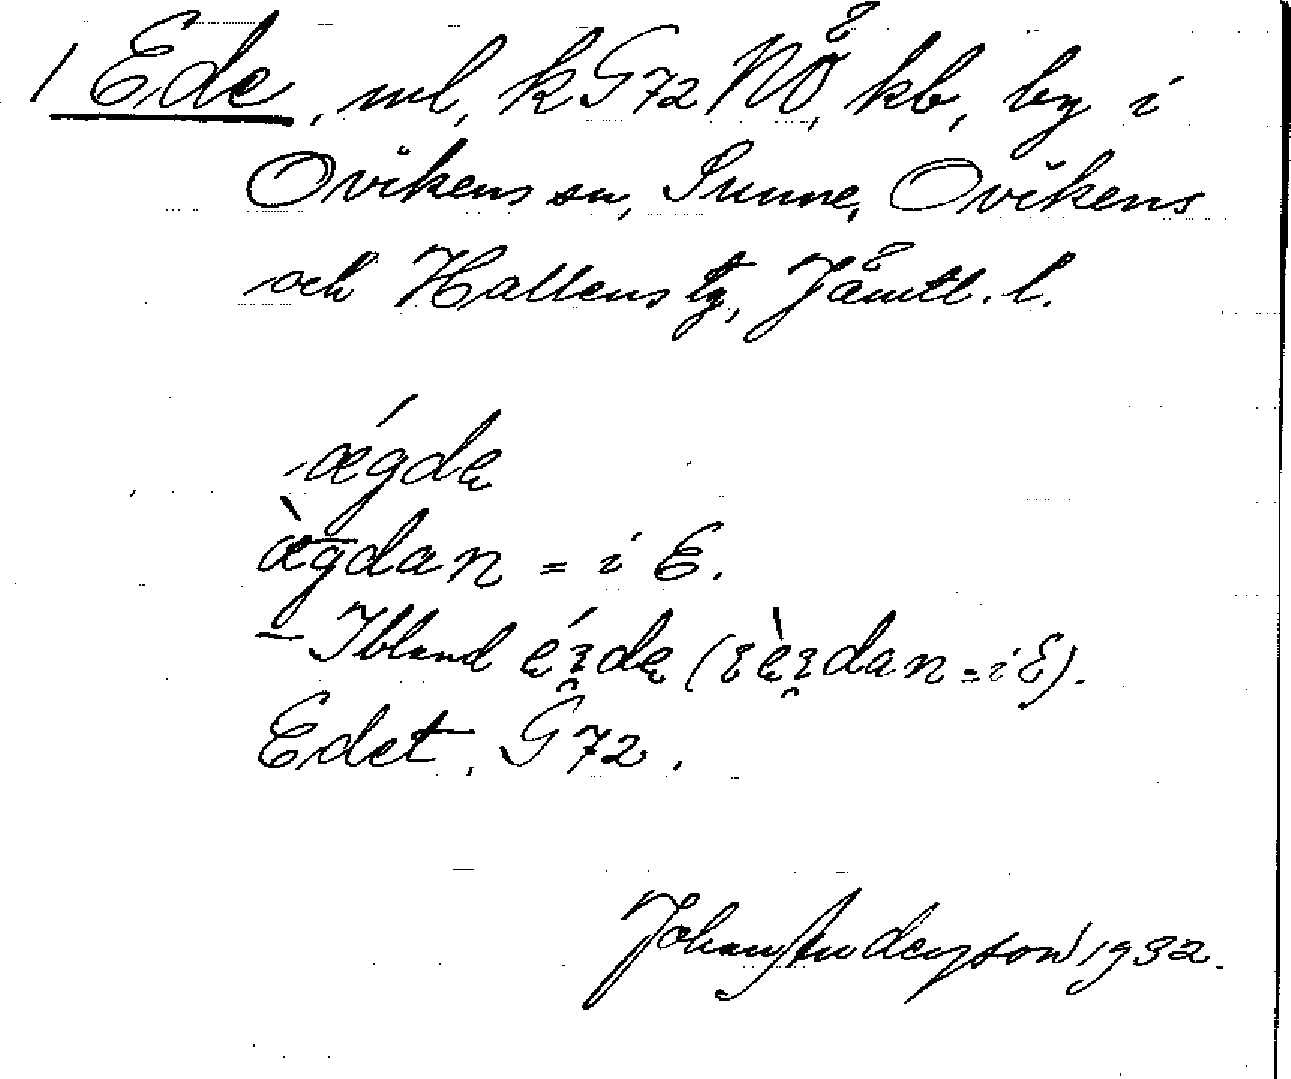 1 Ede, ml, k G72 NÖ, kb, by i
Ovikens sn, Sunne, Ovikens
och Hallens tg, Jämtl. l.
ǽgdę
æ̀gdan = i E.
– Ibland dę ( dan = i E).
Edet, G72.
Johan Anderson 1932.